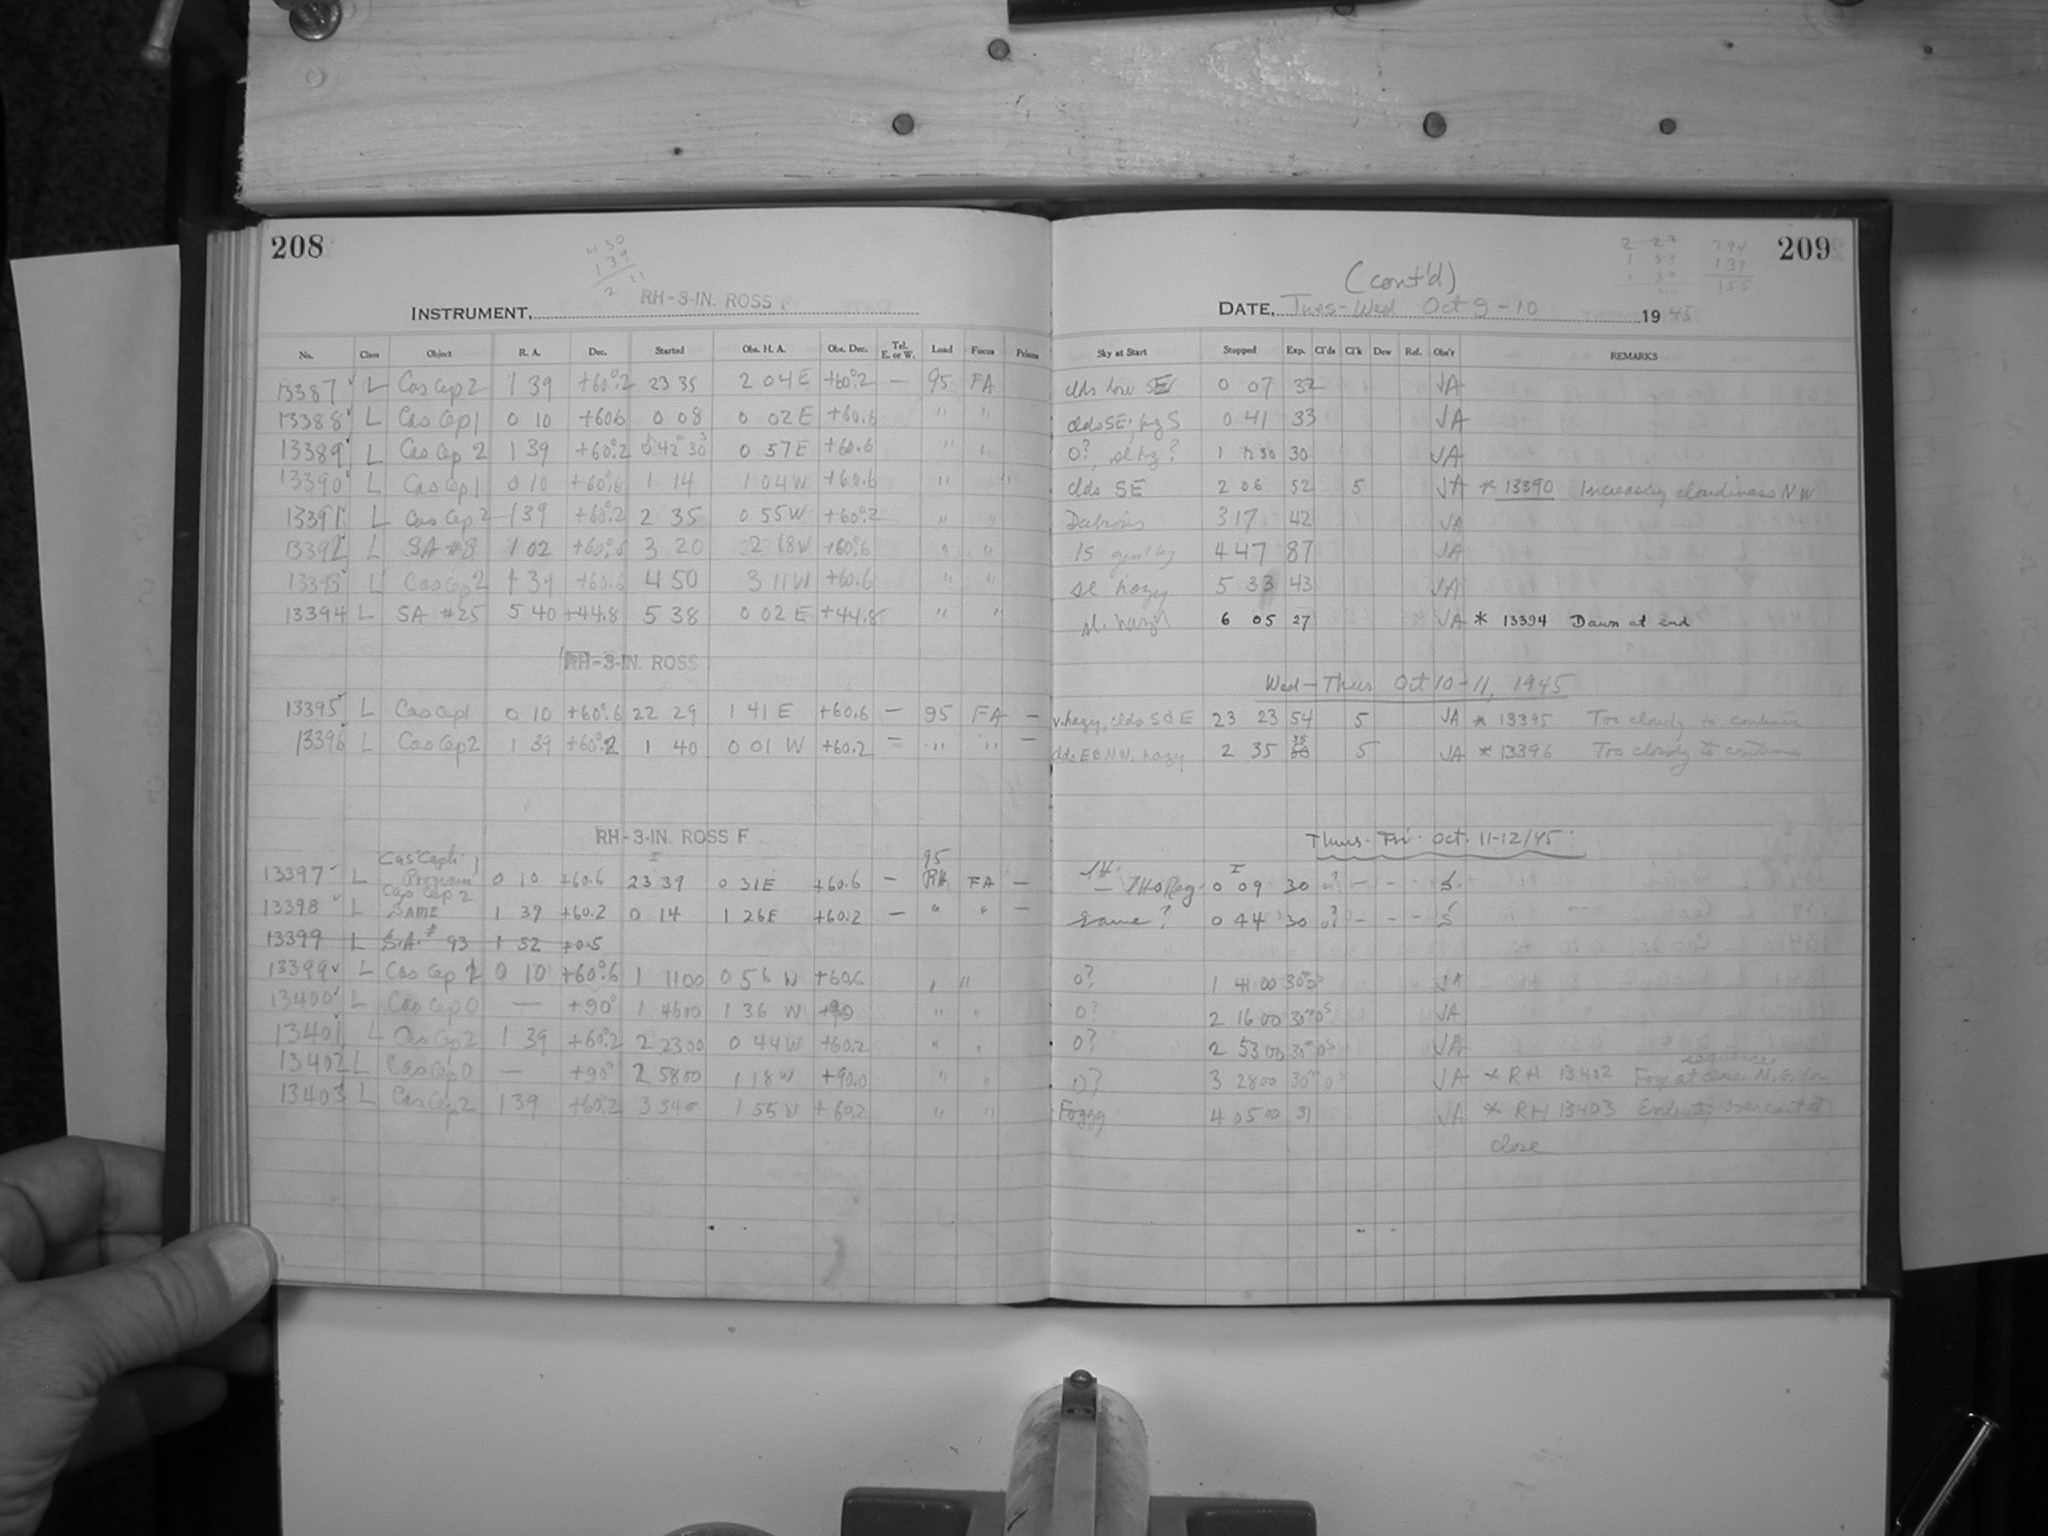 208
450
139
2 11
INSTRUMENT, RH-3-IN. ROSS
No. Class Object R. A. Dec. Started Obs. H. A. Obs. Dec. Tel. E. or W. Load Focus Prisms
13387 L Cas Cep 2 1 39 +60°.2 23 35 2 04 E +60°.2 — 95 FA
13388 L Cas Cep 1 0 10 +60.6 0 08 0 02 E +60.6 " "
13389 L Cas Cep 2 1 39 +60°.2 0 42 30 0 57 E +60.6 " "
13390 L Cas Cep 1 0 10 +60°.6 1 14 1 04 W +60.6 " "
13391 L Cas Cep 2 1 39 +60°.2 2 35 0 55 W +60°.2 " "
13392 L SA #8 1 02 +60°.6 3 20 2 18 W +60°.6 " "
13393 L Cas Cep 2 1 39 +60.6 4 50 3 11 W +60.6 " "
13394 L SA #25 5 40 +44.8 5 38 0 02 E +44.8 " "
RH-3-IN. ROSS
13395 L Cas Cep 1 0 10 +60°.6 22 29 1 41 E +60.6 — 95 FA —
13396 L Cas Cep 2 1 39 +60°.2 1 40 0 01 W +60.2 — " " —
RH-3-IN. ROSS F
13397 L Cas Ceph 1 Program 0 10 +60.6 23 39 0 31 E +60.6 — 95 RH FA —
13398 L Cas Cep 2 SAME 1 39 +60.2 0 14 1 26 E +60.2 — " " —
13399 L S.A. # 93 1 52 +0.5
13399 L Cas Cep 1 0 10 +60°.6 1 11 00 0 56 W +60.6 " "
13400 L Cas Cep 0 — +90° 1 46 00 1 36 W +90 " "
13401 L Cas Cep 2 1 39 +60°.2 2 23 00 0 44 W +60.2 " "
13402 L Cas Cep 0 — +90° 2 58 00 1 18 W +90.0 " "
13403 L Cas Cep 2 1 39 +60°.2 3 34 1 55 W +60.2 " "
209
2 23
1 53
1 30
294
139
155
(cont'd)
DATE, Tues-Wed Oct 9-10 1945
Sky at Start Stopped Exp. Cl'ds Cl'k Dew Ref. Obs'r REMARKS
clds low SE 0 07 32 JA
clds SE, hzy S 0 41 33 JA
0?, sl hzy? 1 12 30 30 JA
clds SE 2 06 52 5 JA * 13390 Increasing cloudiness NW
Dubious 3 17 42 JA
4 47 87 JA
sl hazy 5 33 43 JA
sl. hazy 6 05 27 JA * 13394 Dawn at end
Wed-Thurs Oct 10-11, 1945
v. hazy, clds S & E 23 23 54 5 JA * 13395 Too cloudy to continue
clds E & NW, hazy 2 35 55 5 JA * 13396 Too cloudy to continue
Thurs. Fri. Oct. 11-12/45
0 09 30 — — - S.
same? 0 44 30 — - - S
0? 1 41 00 30 JA
0? 2 16 00 30m 0s JA
0? 2 53 00 30m 0s JA
0? 3 28 00 30m 0s JA * RH 13402 Fog at close. N.G. for sequence
Foggy 4 05 00 31 JA * RH 13403 Entirely overcast at
close